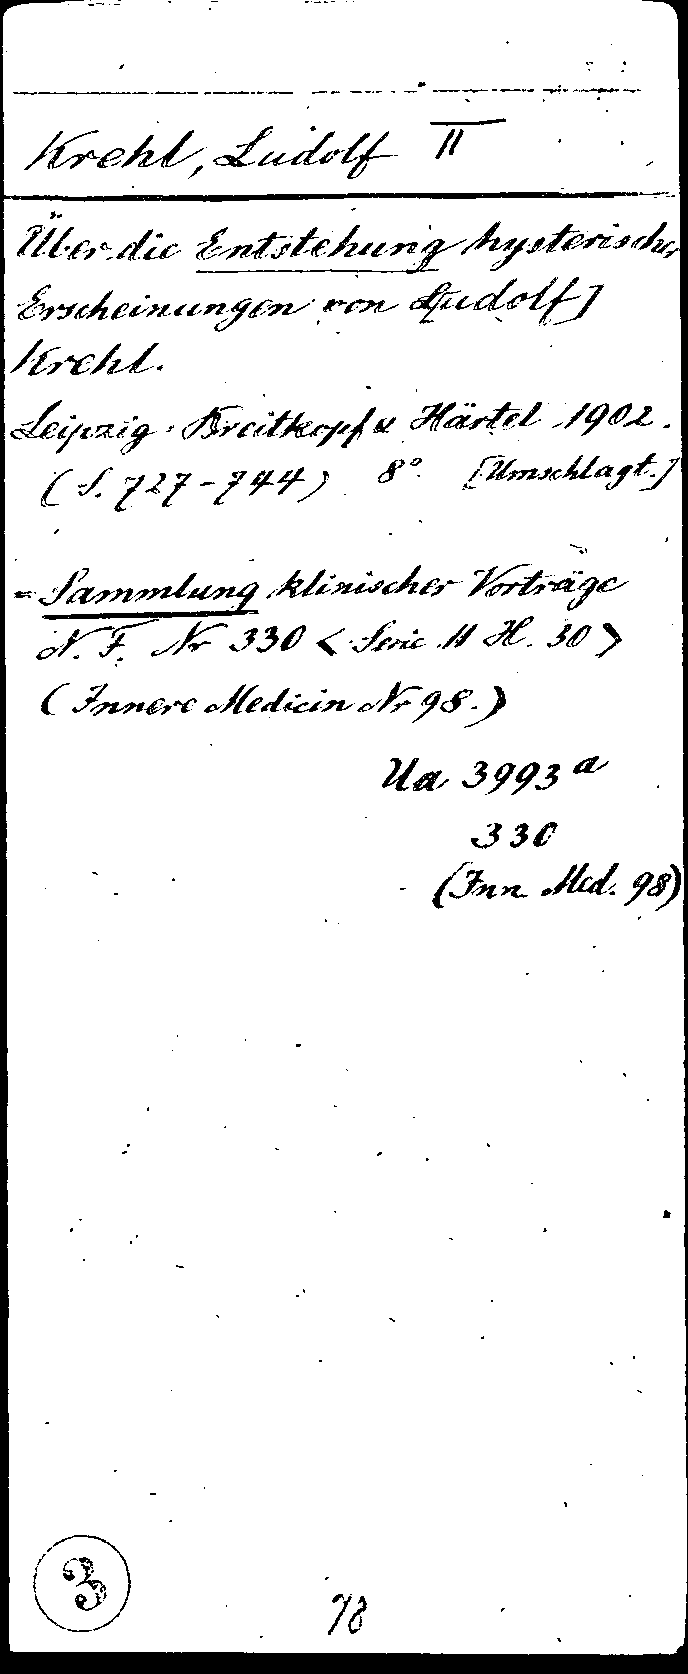 Krehl, Ludolf II
Über die Entstehung hysterischer
Erscheinungen von L[udolf]
Krehl.
Leipzig: Breitkopf u Härtel 1902.
(S. 727-744) 8° [Umschlagt.]
= Sammlung klinischer Vorträge
N. F. Nr 330 < Serie 11 H. 30 >
(Innere Medicin Nr 98.)
Ua 3993 a
330
(Inn. Med. 98)
3
78